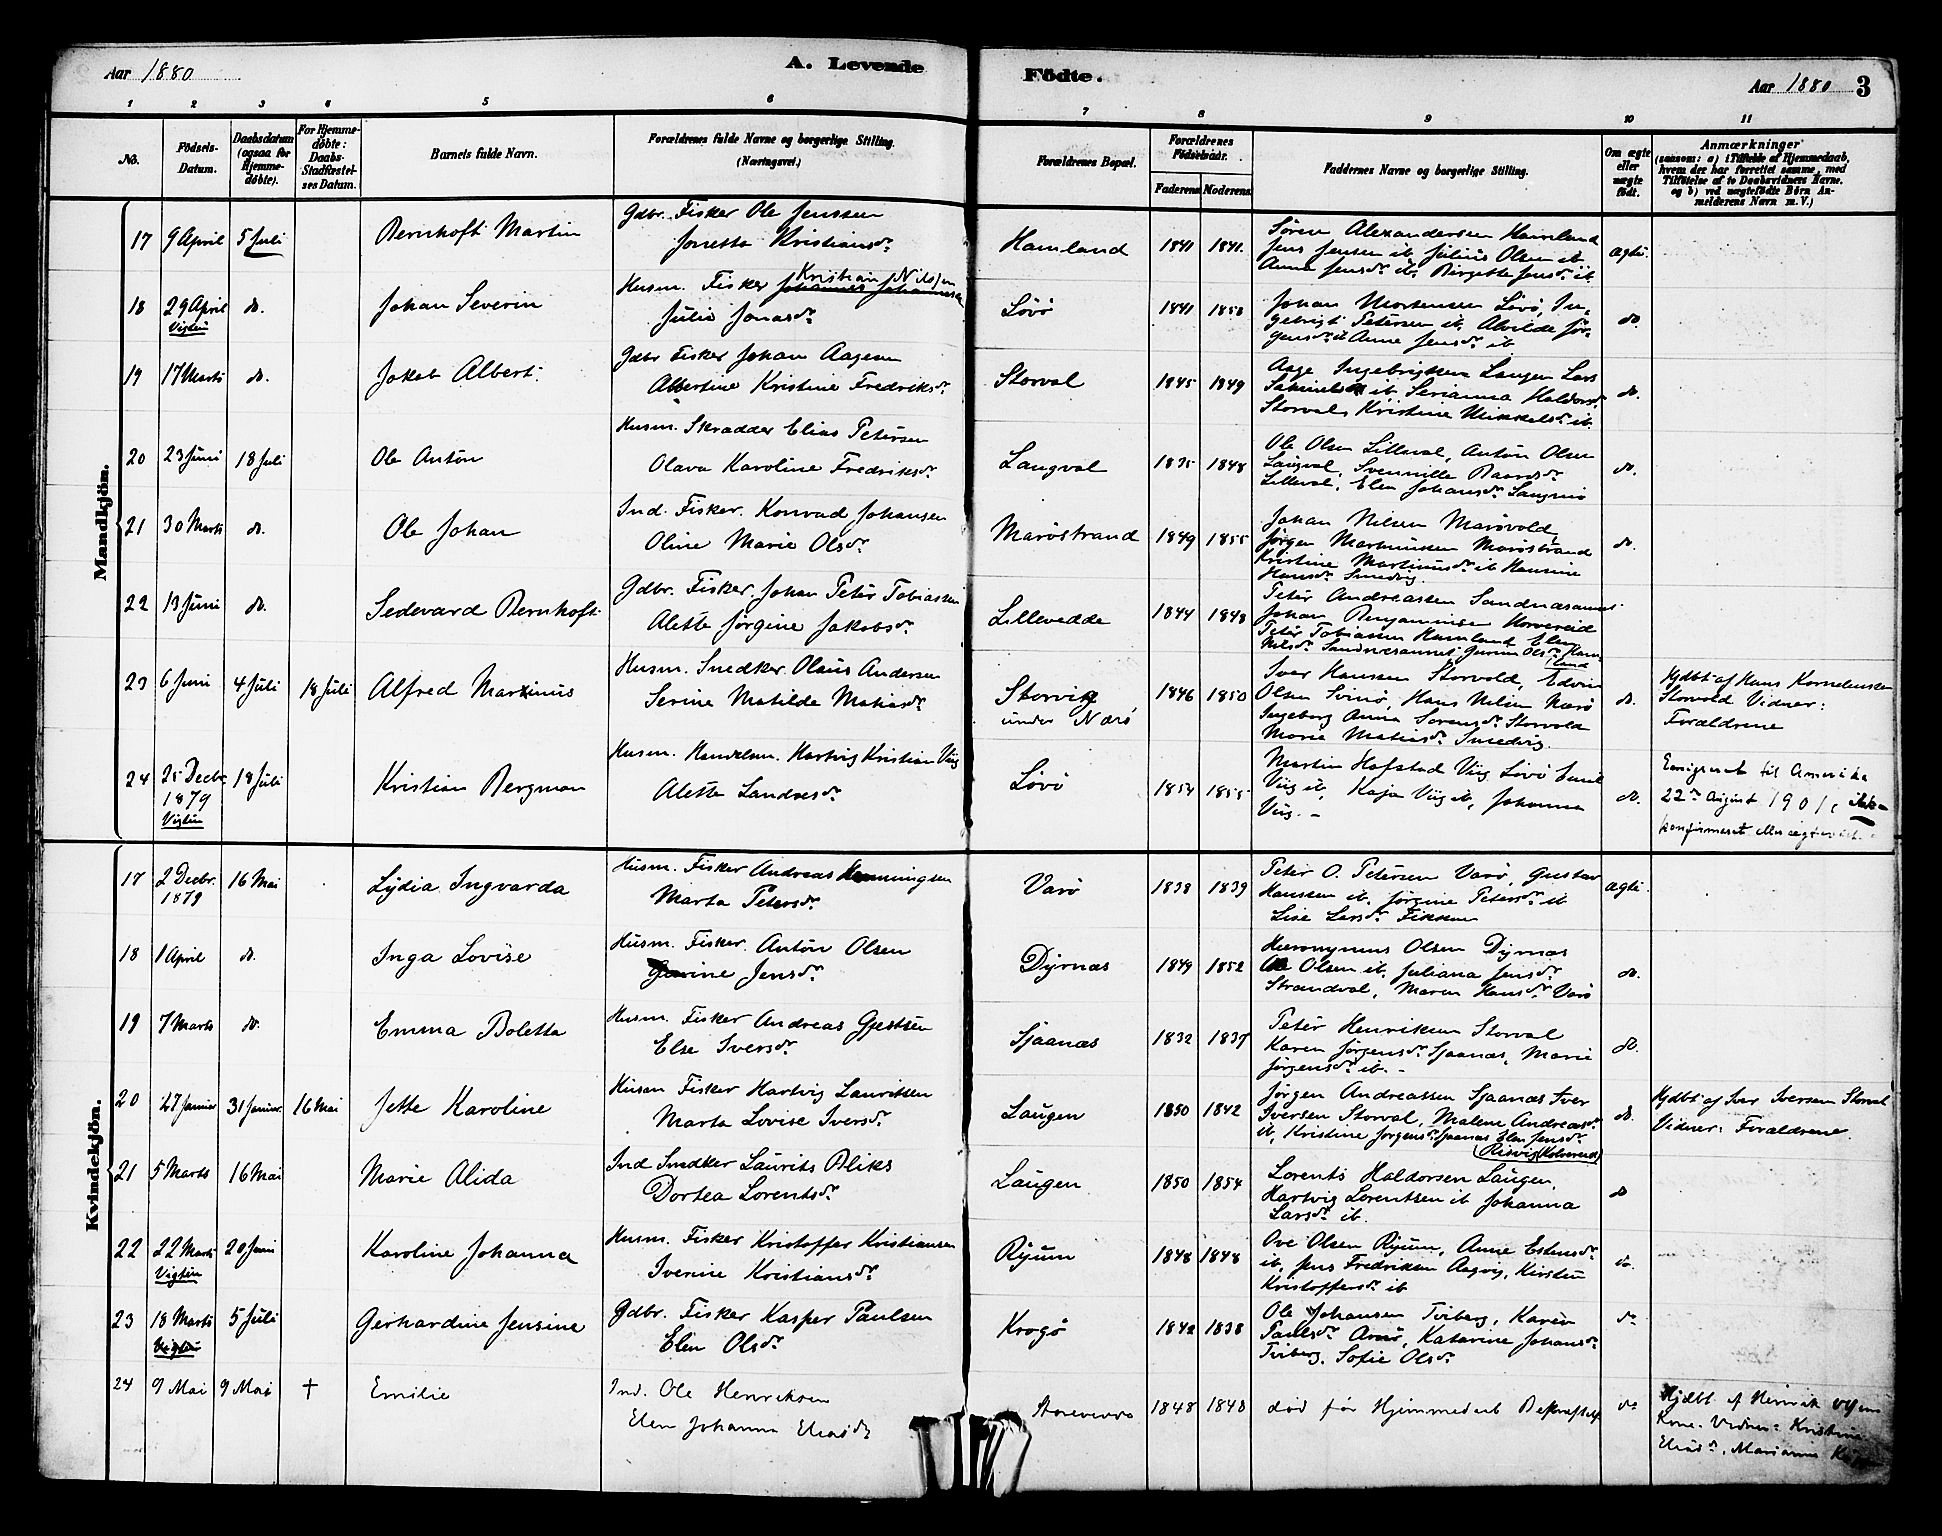 Aar 1880 A. Levende Födte. Aar 1880 3
1 2 3 4 5 6 7 8 9 10 11
No. Födsels-Datum. Daabsdatum (ogsaa for Hjemme-döbte). For Hjemme-döbte: Daabs-Stadfæstel-ses Datum. Barnets fulde Navn. Forældrenes fulde Navne og borgerlige Stilling. (Næringsvei.) Forældrenes Bopæl. Forældrenes Födselsaar. Faderens Moderens Faddernes Navne og borgerlige Stilling. Om ægte eller uægte födt. Anmærkninger (saasom: a) i Tilfælde af Hjemmedaab, hvem der har forrettet samme, med Tilföielse af to Daabsvidners Navne. og b) ved uægtefödte Börn An-melderens Navn m. V.)
Mandkjön.
17 9 April 5 Juli Bernhoft Martin Gdbr. Fisker Ole Jenssen
Jonetta Kristiansdr Hamland 1841 1841.
Sören Alexandersen Hamland
Jens Jensen ib. Julius Olsen ib
Anne Jensdr ib. Birgette Jensdr ib. ægte.
18 29 April Vigten do. Johan Severin Husm. Fisker Kristian Nilsen
Julie Jonasdr Lövö 1841 1850
Johan Mortensen Lövö, In-
gebrigt Petersen ib, Alvilde Jör-
gensdr ib Anne Jensdr ib do.
19 17 Marts do. Jakob Albert. Gdbr Fisker Johan Aagesen
Albertine Kristine Fredriksdr Storval 1845 1849
Aage Ingebrigtsen Laugen Lars
Samuelsen ib, Serianna Haldorsdr
Storval, Kristine Mikkelsdr ib. do.
20 23 Juni 18 Juli Ole Anton Husm. Skrædder Elias Petersen
Olava Karoline Fredriksdr Langval 1835 1848
Ole Olsen Lilleval, Anton Olsen
Langval, Svennille Baardsdr
Lilleval, Elen Johansdr do.
21 30 Marts do. Ole Johan Ind. Fisker. Konrad Johansen
Oline Marie Olsdr Maröstrand 1849 1855
Johan Nilsen Marövold,
Jörgen Martinusen Maröstrand
Kristine Martinusdr ib Hansine
Hansdr Smedvig. do.
22 13 Juni do. Sedevard Bernhoft Gdbr. Fisker. Johan Peter Tobiassen
Alette Jörgine Jakobsdr Lillevedde 1844 1848
Peter Andreassen Sandnæsaunet
Johan Benjaminsen Horvereid
Peter Tobiassen Hamland Elen
Nilsdr Sandnæsaunet Olsdr Ham-
land
23 6 Juni 4 Juli 18 Juli Alfred Marinus Husm. Snedker. Olaus Andersen
Serine Matilde Matiasdr Storvig
under Nærö 1846 1850
Iver Hansen Storvold, Edvin
Olsen Svinö, Hans Nilsen Nærö
Ingeborg Anna Sorensdr Storvold
Marie Matiasdr Smedvig. do. Hjdbt af Hans Kornelinssen
Storvold Vidner:
Forældrene
24 25 Decbr 1879 Vigten 18 Juli Kristian Bergman Husm. Handelsm. Hartvig Kristian Viig
Alette Landrosdr Lövö 1854 1855
Martin Hofstad Viig Lövö Emil
Viig ib, Kaja Viig ib, Johanna
Viig. - do. Emigreret til Amerika
22de August 1901, ikke
konfirmeret
Kvindekjön.
17 2 Decbr. 1879 16 Mai Lydia Ingvarda Husm. Fisker Andreas Henningsen
Marta Petersdr Varö 1838 1839
Peter O. Petersen Varö, Gustav
Hanssen ib, Jörgine Petersdr ib
Lise Larsdr Fikkan ægte.
18 1 April do. Inga Lovise Husm. Fisker. Anton Olsen
Jensdr Dyrnæs 1849 1852
Hieronymus Olsen Dyrnæs
Ole Olsen ib. Juliana Jensdr
Strandval, Maren Hansdr Varö do.
19 7 Marts do. Emma Boletta Husm. Fisker Andreas Gjertsen
Else Iversdr Sjaanæs 1832 1837
Peter Henriksen Storval
Karen Jörgensdr Sjaanæs, Marie
Jörgensdr ib. - do.
20 27 Januar 31 Januar 16 Mai Jette Karoline Husm Fisker Hartvig Lauritsen
Marta Lovise Iversdr Laugen 1850 1842
Jörgen Andreassen Sjaanæs Iver
Iversen Storval, Malene Andreasdr
ib, Kristine Jörgensdr Sjaanæs Elen Jensdr
(Risvig Kolvereid) do. Hjdbt af Iver Iversen Storval
Vidner: Forældrene.
21 5 Marts 16 Mai Marie Alida Ind Snedker Laurits Bliks
Dortea Lorentsdr Laugen 1850 1854
Lorents Haldorsen Laugen,
Hartvig Lorentsen ib Johanna
Larsdr ib. do
22 22 Marts Vigten 20 Juni Karoline Johanna Husm. Fisker Kristoffer Kristiansen
Iverine Kristiansdr Ryum 1848 1848
Ove Olsen Ryum, Anne Estensdr
ib, Jens Fredriksen Aagvig, Kirsten
Kristoffersdr ib do.
23 18 Marts Vigten 5 Juli Gerhardine Jensine Gdbr. Fisker Kasper Paulsen
Elen Olsdr Krogö 1842 1838
Ole Johansen Tviberg, Karen
Paulsdr Arnö, Katarine Johansdr
Tviberg. Sofie Olsdr do
24 9 Mai 9 Mai † Emilie Ind. Ole Henriksen
Elen Johanna Eliasdr 1848 1848
död før Hjemmedaab Bekræftelse do Hjdbt af Henrik
Kone. Vidner: Kristine
Eliasdr, Marianne